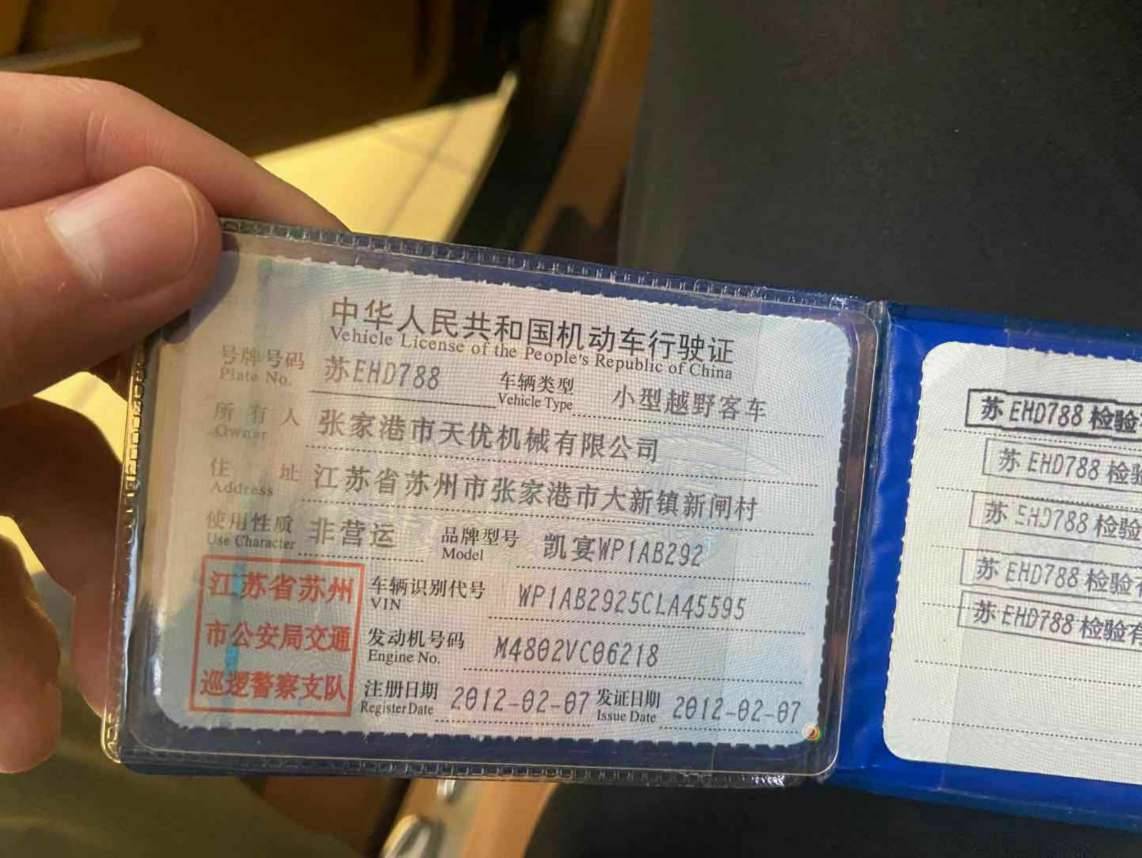 中华人民共和国机动车行驶证
Vehicle License of the People's Republic of China
号牌号码 苏EHD788 车辆类型 小型越野客车
Plate No. Vehicle Type
所有人 张家港市天优机械有限公司
Owner
住址 江苏省苏州市张家港市大新镇新闸村
Address
使用性质 非营运 品牌型号 凯宴WP1AB292
Use Character Model
江苏省苏州
市公安局交通
巡逻警察支队
车辆识别代号 WP1AB2925CLA45595
VIN
发动机号码 M4802VC06218
Engine No.
注册日期 2012-02-07 发证日期 2012-02-07
Register Date Issue Date
苏EHD788检验
苏EHD788检验
苏EHD788检验
苏EHD788检验
苏EHD788检验有